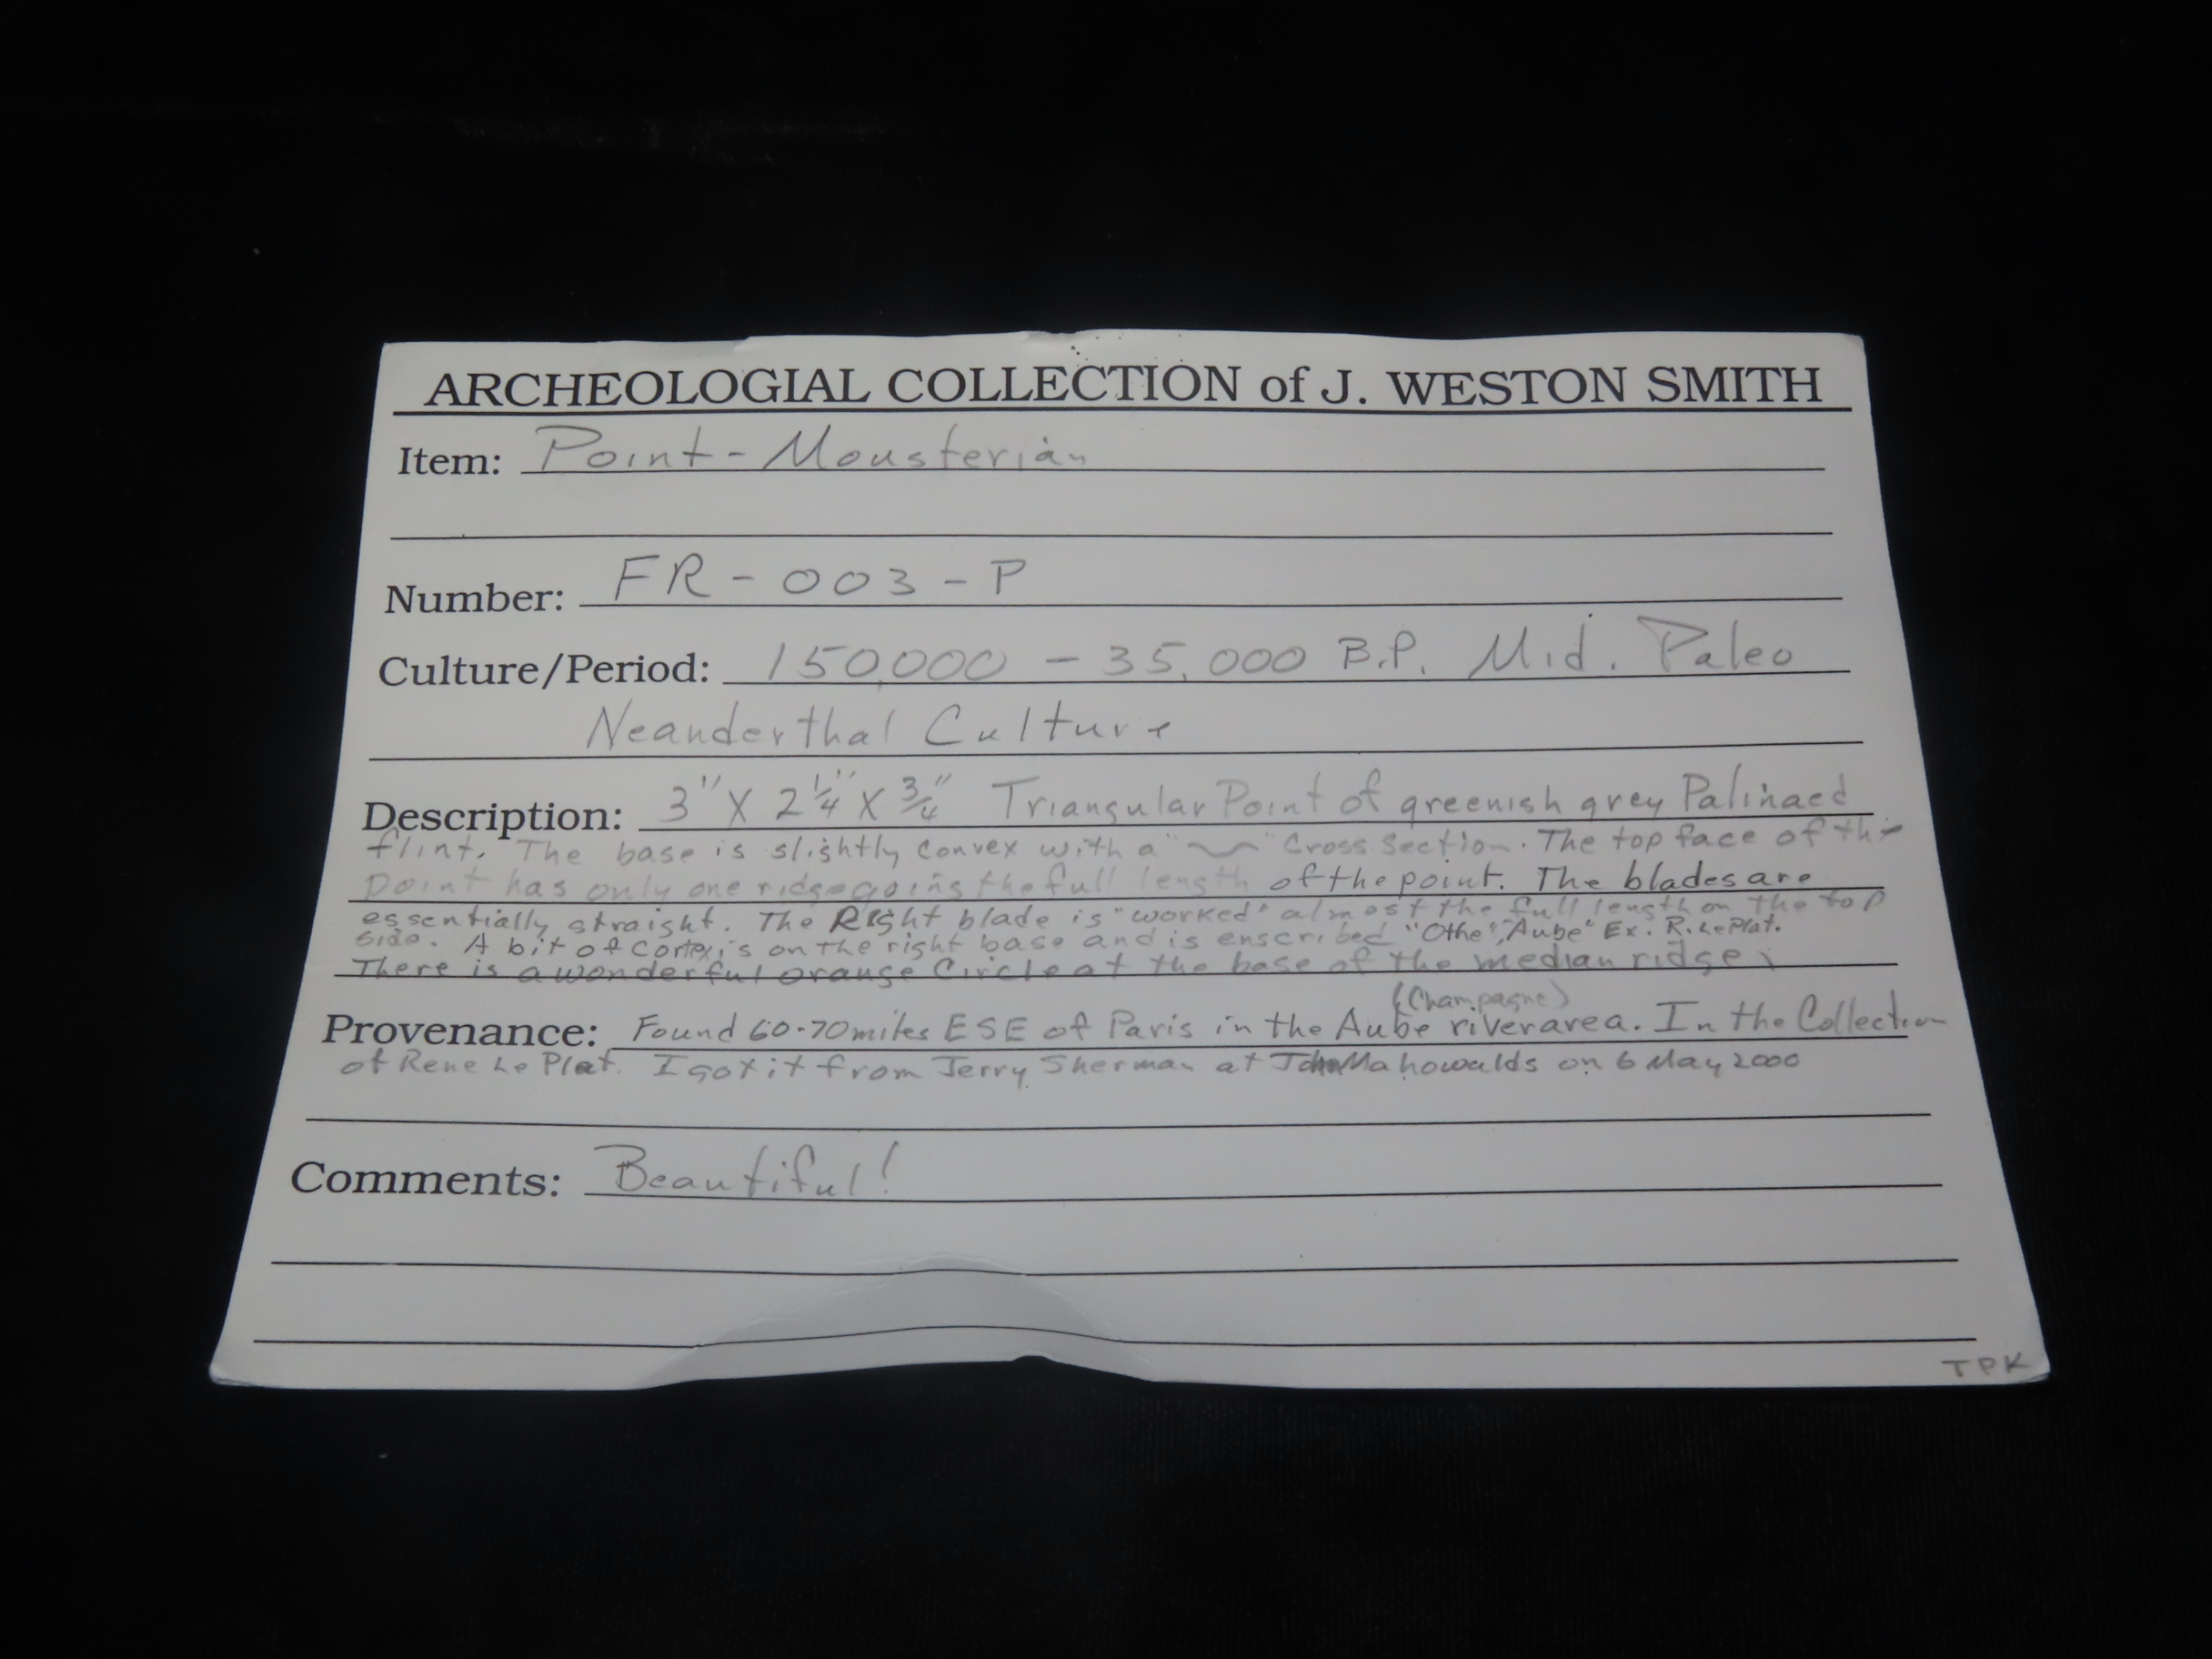 ARCHEOLOGIAL COLLECTION of J. WESTON SMITH
Item: Point - Mousterian
Number: FR - 003 - P
Culture/Period: 150,000 - 35,000 B.P. Mid. Paleo
Neanderthal Culture
Description: 3" X 2 1/4" X 3/4" Triangular Point of greenish grey Patinaed
flint. The base is slightly convex with a " " Cross Section. The top face of the
point has only one ridge going the full length of the point. The blades are
essentially straight. The Right blade is "worked" almost the full length on the top
side. A bit of Cortex is on the right base and is enscribed "Othe", "Aube" Ex. R. Le Plat.
There is a wonderful orange Circle at the base of the median ridge.
(Champagne)
Provenance: Found 60-70 miles ESE of Paris in the Aube river area. In the Collection
of Rene Le Plat. I got it from Jerry Sherman at John Mahowalds on 6 May 2000
Comments: Beautiful!
TPK